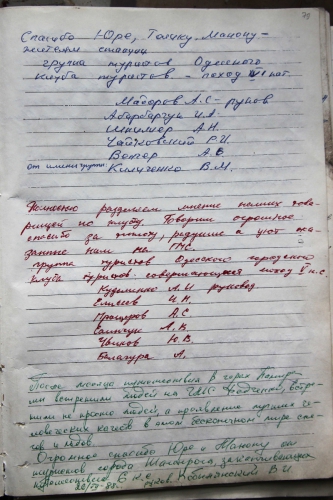 79
Спасибо Юре, Толику, Манону -
жителям станции
группа туристов Одесского
клуба туристов - поход VI кат.
Майоров А.С - руков
Абарбарчук И.А.
Шпилмер А.Н.
Чайковский Р.И.
Вегнер А.В
от имени группы: Киличенко В.М.
Полностью разделяем мнение наших това-
рищей по клубу. Говорим огромное
спасибо за теплоту, радушие и уют ока-
занные нам на ГМС.
группа туристов Одесского городского
клуба туристов совершающая поход V к.с.
Кудименко А.И руковод
Елисеев И.Н.
Прошуров А.С
Салтчук Л.В
Чвиков Ю.В.
Белазура А.
После месяца путешествия в горах Памира
мы встретили людей на ГМС Федченко, встре-
тили не просто людей, а проявление лучших че-
ловеческих качеств в этом бесконечном мире снегов
и льдов.
Огромное спасибо Юре и Манону от
туристов города
6 к.с.